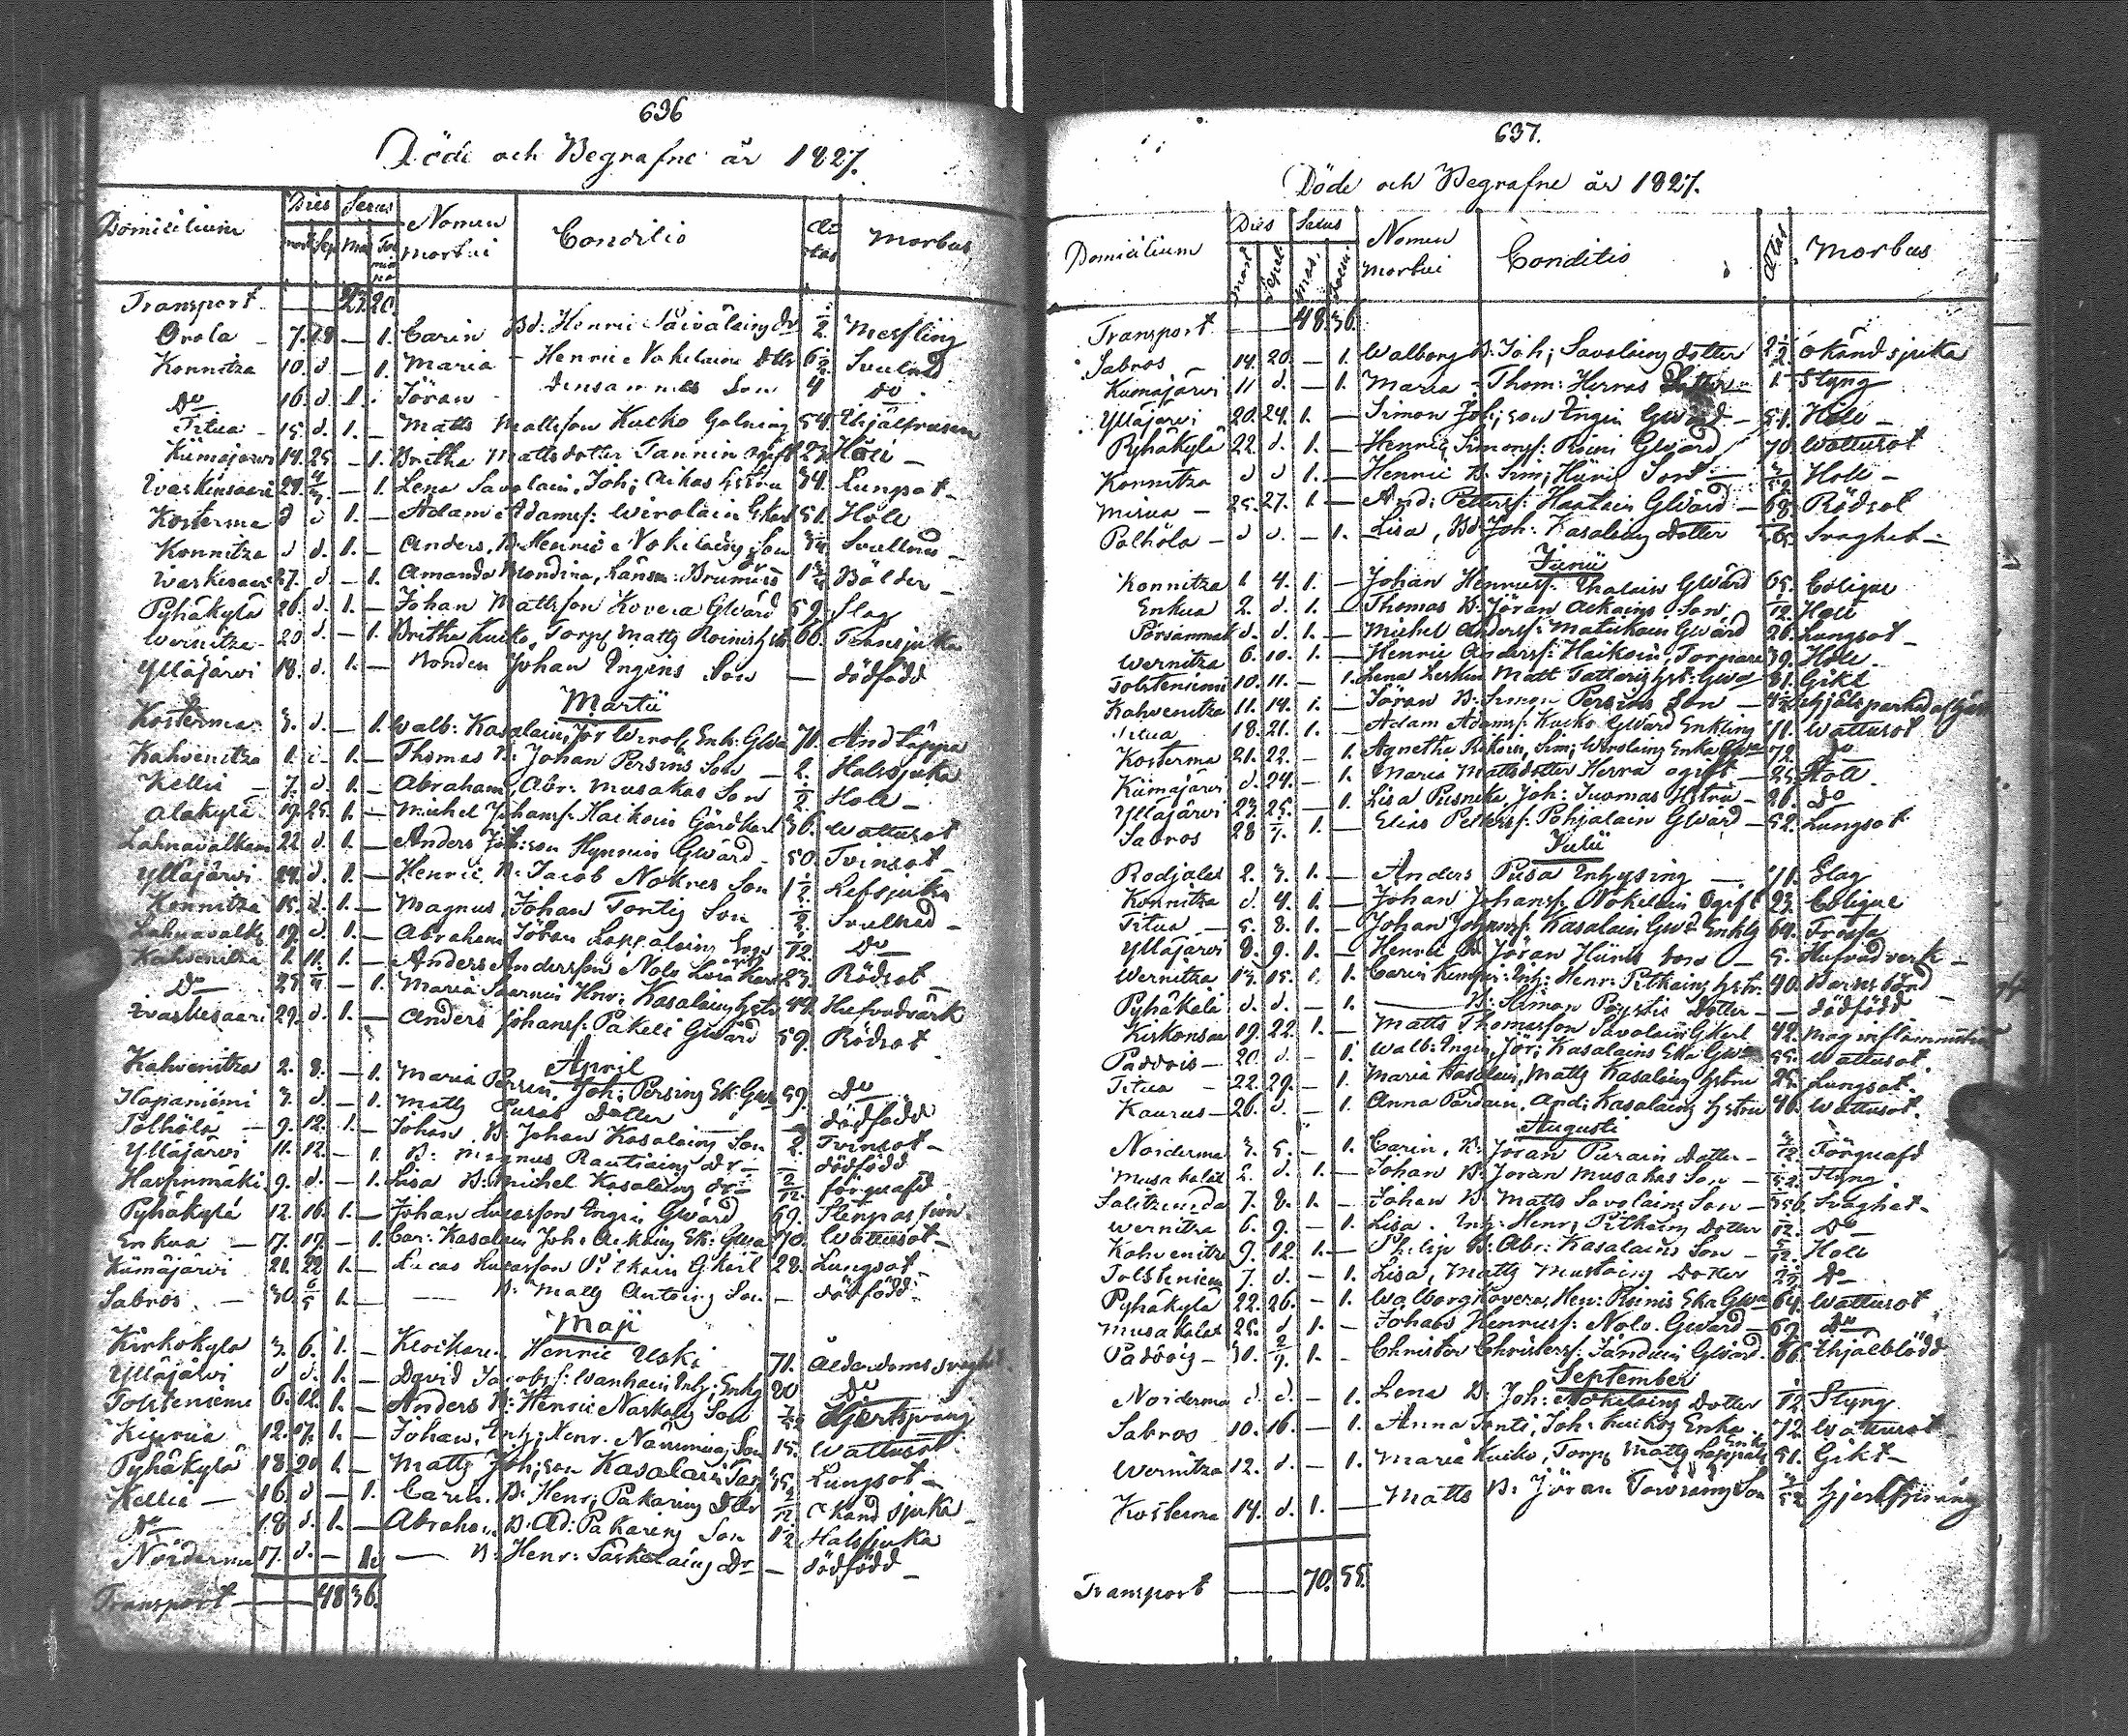 636
Döde och Begrafne år 1827.
Domicilium Dies Sexus Nomen Conditio Ætas Morbus
mort Sep Mas Foeminea mortui
Transport 27. 20.
Orola - 7. 18 - 1. Carin Bd: Henric Säiväläing dr 1/2 Messling
Konnitza 10. d. - 1. Maria Henric Nokelains dttr 6 1/2 Svullnad
Do 16. d. 1. Jöran densammes Son 4 Do
Titua - 15. d. 1. - Matts Mattsson Kucko Galning 54. Ihjälfrusen
Kümäjärvi 14. 25 - 1. Britha Mattsdotter Tannin ogift 27. Håll -
Waskinsaari 24. 4/3 - 1. Lena Savolain, Joh; Aikas hstru 34. Lungsot -
Kosterma d d 1. - Adam Adamss: Wirolain Gkarl 51. Håll
Konnitza d d. 1. - Anders, B. Henric Nokelaing Son 3/4 Svullnad -
Waskesaari 27. d - 1. Amanda Blondina, Länsm: 1 3/4 Bölder
Pyhäkylä 26. d. 1. - Johan Mattsson Kovera Gwärd 59. Slag
Wernitza 20. d. - 1. Britha Kucko, Torp Matts Roinis hstr 66. Trånsjuka
Ylläjärvi 18. d. 1. - Bonden Johan Ingins Son - dödfödd
Martii
Kosterma 3. d. - 1. Walb: Kasalain, Jör Wirol; Enk: Gwa 71. Andtäppa
Kahvenitza 1. d - 1. - Thomas B. Johan Persins Son - 2. Halssjuka
Kellis - 7. d. 1. - Abraham, Abr: Musakas Son 1/2 Håll -
Alakylä 19. 25. 1. - Michel Johanss: Haikoin Gårdkarl 36. Wattusot
Lahnavalkam 22. d. 1. - Anders Joh:son Hynnin Gwärd - 50. Tvinsot
Ylläjärvi 24. d. 1. - Henric B. Jacob Nokres Son 1 1/2 Refsjuka
Konnitza 15. d. 1. - Magnus, Johan Tontig Son 1/2 Svullnad -
Lahnavalk; 19. d. 1. - Abraham Jöran Lappalaing Son 12. Do
Kahvenitza 1. 11. 1. - Anders Andersson Nolo ogift 23. Rödsot -
Do 25 - 1. Maria Saarnin Henr: Kasalaing hstr 44. Hufvudvärk
Waskesaari 29. d. 1. - Anders Johanss: Pakeli Gwärd 59. Rödsot
April
Kahvenitza 2. 8. - 1. Maria Persin, Joh: Persing Ek: Gwa 59. Do -
Hapaniemi 3. d. - 1. Matts Pusas Dotter - dödfödd
Pölhölä - 9. 12. 1. - Johan B. Johan Kasalaing Son 2. Tvinsot -
Ylläjärvi 11. 12. - 1. B: Magnus Rautiaing dr - dödfödd
Harfinmäki 9. d. - 1. Lisa B. Michel Kasalaing dr - 2/12. förquafd
Pyhäkylä 12. 16. 1. - Johan Lucasson Ingin Gwärd 69. Stenpassion
Enkua - 17. 17. - 1. Car: Kasalain Joh: Aickaing Ek: Gwa 70. Wattusot -
Kümäjärvi 21. 22. 1. - Lucas Lucasson Pitkain Gkarl 28. Lungsot
Sabros - 30. 6/5 1. - B. Matts Antoing Son - dödfödd
Maji
Kirkokylä 3. 6. 1. - Klockare Henric Uski 71. Ålderdomssvaghet
Ylläjärvi d d. 1. - David Jacobss: Wanhain Inh; Enkg 80 Do
Tolsteniemi 6. 12. 1. - Anders B: Henric Naskalis Son 7/52 Hjertsprång
Kiurua 12. 17. 1. - Johan, Inh; Henr. Nämming Son 15. Wattusot
Pyhäkylä 18. 20. 1. - Matts Joh;son Kasalain Torp 35. Lungsot -
Kellis - 16. d - 1. Carin. B. Henr; Pakaring Dttr 2/12. Okänd sjuka
Do 18 d. 1. - Abraham B. Ad: Pakaring Son 1 1/2 Halssjuka
Noiderma 17. d. - 1. - B. Henr: Särkelaing Dr - dödfödd -
Transport 48 36.
637.
Döde och Begrafne år 1827.
Domicilium Dies Sexus Nomen Conditio Ætas Morbus
mort Sepult Mas. Foem mortui
Transport 48. 36.
Sabros - 14. 20. - 1. Walborg B. Joh; Savolaing dotter 2 1/2 Okänd sjuka
Kümäjärvi 11 d. - 1. Maria - Thom: Herras Dotter - 1. Styng
Ylläjärvi 20. 24. 1. - Simon Joh;son Ingin Gwärd - 51. Håll -
Pyhäkylä 22. d. 1. - Henric Simonss: Roini Gwärd 70. Wattusot
Konnitza d d 1. - Henric B. Sim; Hüris Son - 3/52 Håll -
25. 27. 1. - And: Peterss: Haatain Gwärd - 68. Rödsot
Pölhölä - d d. - 1. Lisa, Bd: Joh: Kasalaing Dotter Svaghet -
Junii
Konnitza 1 4. 1. - Johan Henricss: Thalain Gwärd 65. Colique
Enkua 2. d. 1. - Thomas B. Jöran Aikains Son 12. Håll
d. d. 1. - Michel Anderss: Matikain Gwärd 26. Lungsot -
Wernitza 6. 10. 1. - Henric Anderss: Haikoin, Torpare 39. Håll.
Tolsteniemi 10. 11. - 1. Lena Leskin Matt Tattaris hst: Gwa 81. Gikt
Kahvenitza 11. 14. 1. - Jöran B. Simon Persins Son
Titua 18. 21. 1. - Adam Adamss: Kucko Gwärd Enkling 71. Wattusot
Kosterma 21. 22. - 1. Agnetha Rikoin, Sim; Wirolaing Enka Gwa 72. Do
Kümäjärvi d. 24. - 1. Maria Mattsdotter Herra ogift - 25. Håll
Ylläjärvi 23. 25. - 1. Lisa Pusneka, Joh: Tuomas Hstru - 26. do
Sabros 28 1. - Elias Peterss: Pohjalain Gwärd - 52. Lungsot
Julii
Rodjales 2. 3. 1. - Anders Pusa Inhysing - 71. Slag
Konnitza d. 4. 1. - Johan Johanss: Nokelain Ogift 23. Colique
Titua - 5. 8. 1. - Johan Johanss: Kasalain Gwd Enklg 64. Frossa
Ylläjärvi 8. 9. 1. - Henric Bd Jöran Hüris Son - 5. Hufvudverk -
Wernitza 13. 15. - 1. Carin Inh: Henr: Pitkaing hstr. 40. Barnsbörd
Pyhäkylä d. d. - 1. B: Simon Pöystis Dotter - - dödfödd
Kirkonsaa 19. 22. 1. - Matts Thomasson Savolain Gkarl 42. Mag inflammation
Paddois - 20. d. - 1. Walb: Ingin, Jör; Kasalains Eka Gwa 55. Wattusot
Titua - 22. 29. - 1. Maria Kasalain, Matts Kasalaing hstru 25. Lungsot.
Kaurus - 26. d. - 1. Anna Pardain, And; Kasalaing hstru 40. Wattusot.
Augusti
Noiderma 3. 5. - 1. Carin, B. Jöran Purain Dotter - 3/12. Förquafd
Musakalat 2. d. 1. - Johan B. Jöran Musakas Son - Styng.
7. 8. 1. - Johan B. Matts Savolains Son - Svaghet.
Wernitza 6. 9. - 1. Lisa. Inh: Henr; Pitkaing Dotter 12. Do
Kahvenitza 9. 12. 1. - Philip B: Abr: Kasalains Son - 12. Håll
Tolsteniem 7. d. - 1. Lisa, Matts Mustoing Dotter Do -
Pyhäkylä 22. 26. - 1. Walborg Kovera, Hen: Roinis Eka Gwa 64. Wattusot
Musakalat 25. d 1. - Johans Henricss: Nolo. Gwärd - 67. Do
Paddois - 30. 2/9. 1. - Christer Christerss: Tanduin Gwärd. 66. Ihjälblödd
September
Noiderma d. d. - 1. Lena B: Joh: Nokelaing Dotter 12. Styng
Sabros 10. 16. - 1. Anna Tonti, Joh: Kuikos Enka 72. Wattusot
Wernitza 12. d. - 1. Maria Kucko, Torp Matts Lappala; Enka 51. Gikt -
Kosterma 14. d. 1. - Matts B. Jöran Son 3/52 Hjertsprång
Transport 70. 55.